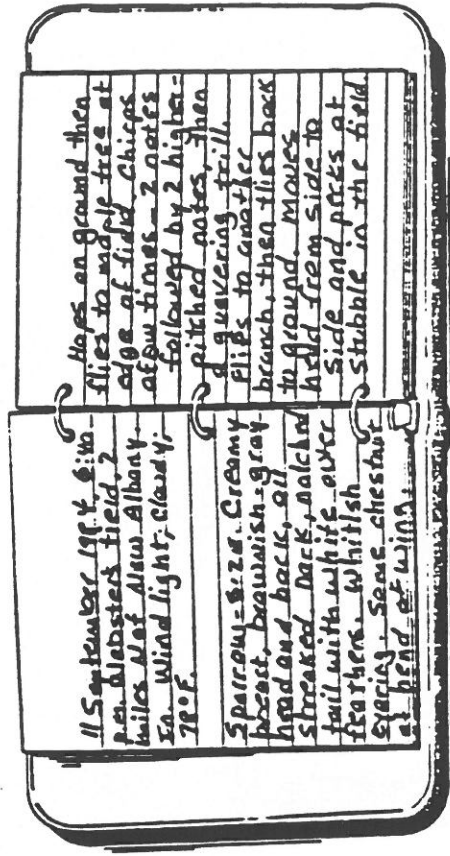 11 September 1984, 6:10
pm. Webster field, 2
miles N of New Albany
In. Wind light, cloudy,
78°F.
Sparrow - 6:20. Creamy
breast, brownish-gray
head and back, all
streaked dark, notched
tail with white outer
feathers, whitish
eyering. Some chestnut
at bend of wing.
Hops on ground then
flies to maple tree at
edge of field. Chirps
a few times - 2 notes
followed by 2 higher-
pitched notes, then
a quavering trill.
Flies to another
branch, then flies back
to ground. Moves
head from side to
side and pecks at
stubble in the field.